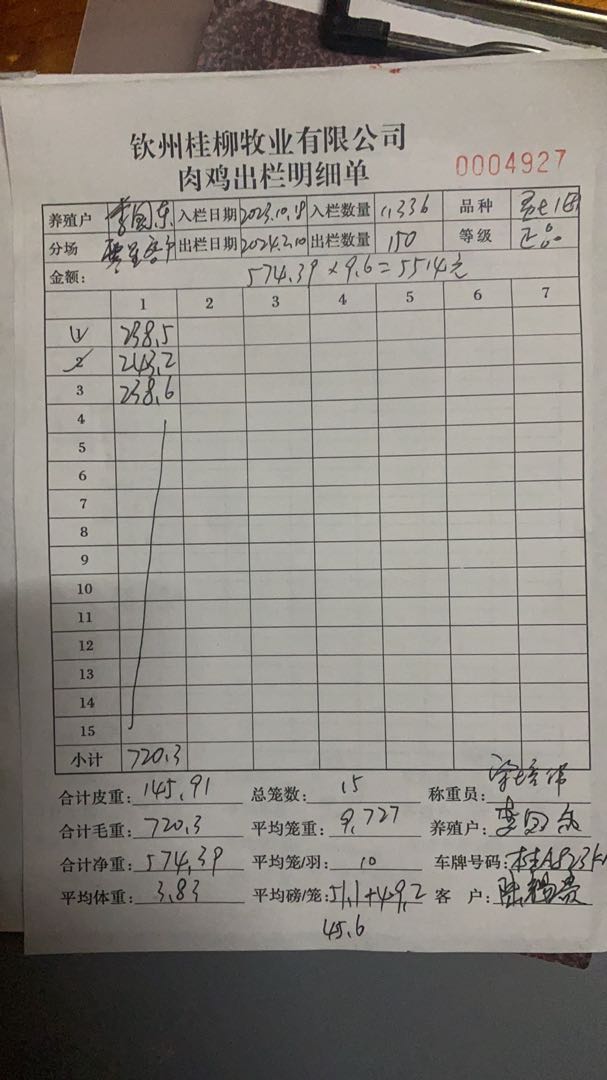 钦州桂柳牧业有限公司
肉鸡出栏明细单 0004927
养殖户 李国东 入栏日期 2023.10.19 入栏数量 1,336 品种
分场 出栏日期 2024.2.10 出栏数量 150 等级 正品
金额: 574.39×9.6=5514元
1 2 3 4 5 6 7
1 238.5
2 243.2
3 238.6
4
5
6
7
8
9
10
11
12
13
14
15
小计 720.3
合计皮重: 145.91 总笼数: 15 称重员:
合计毛重: 720.3 平均笼重: 9.727 养殖户: 李国东
合计净重: 574.39 平均笼/羽: 10 车牌号码: 桂A823k
平均体重: 3.83 平均磅/笼: 51.1+49.2 客 户:
45.6